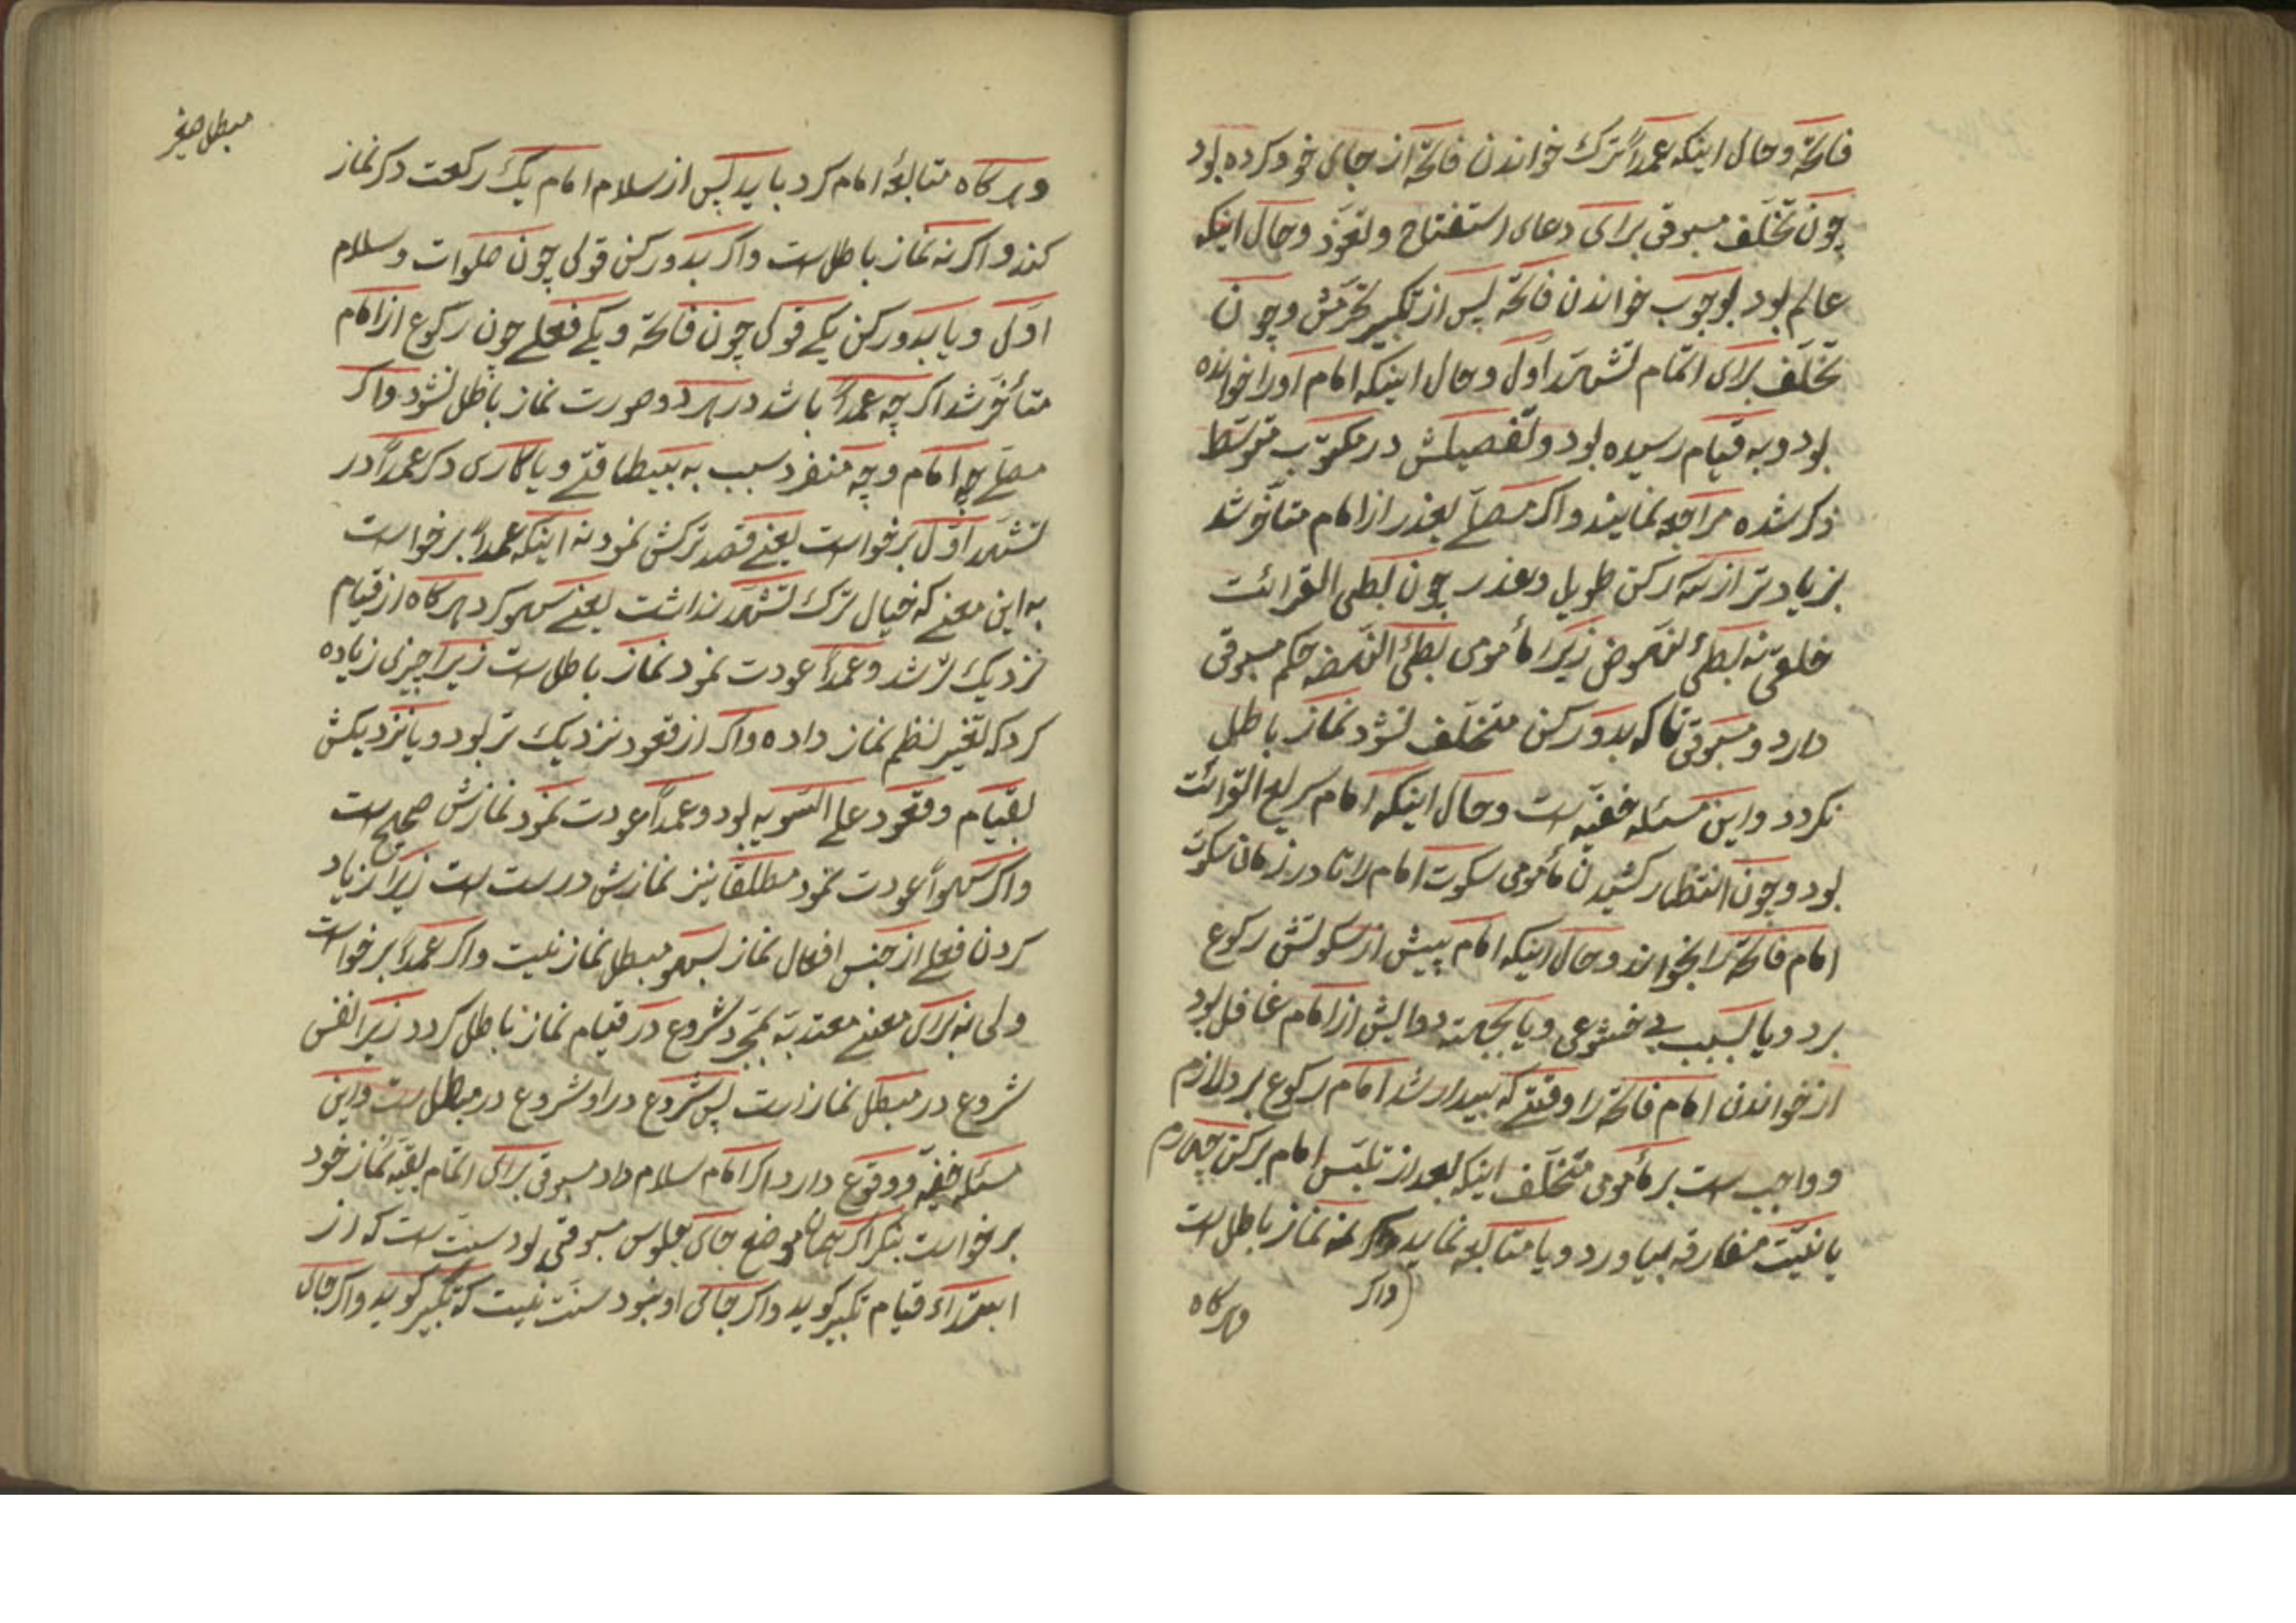 فاتحه وحال اینکه عمداً ترک خواندن فاتحه از جای خود کرده بود
چون تخلّف مسبوقی برای دعای استفتاح وتعوّذ وحال اینکه
عالم بود بوجوب خواندن فاتحه پس از تکبیر تحرّمش وچون
تخلّف برای اتمام تشهّد اوّل وحال اینکه امام اورا خوانده
بود وبه قیام رسیده بود وتفصیلش در مکتوب متوسّط
ذکر شده مراجعه نمایند واگر مصلّے بعذر از امام متأخّر شد
بزیادتر از سه رکن طویل وعذر چون بطئ القرائت
خلقی نه بطئ النهوض زیرا مأمومی بطئ النهضه حکم مسبوقی
دارد ومسبوقی تا که بدو رکن متخلّف نشود نماز باطل
نکردد واین مسئله خفیّه است وحال اینکه امام سریع القرائت
بود وچون انتظار کشیدن مأمومی سکوت امام را تا در زمان سکوت
امام فاتحه را بخواند وحال اینکه امام پیش از سکوتش رکوع
برد ویا بسبب بی خشوعی ویا بجهته دوالیش از امام غافل بود
از خواندن امام فاتحه را وقتے که بیدار شد امام رکوع برد لازم
وواجب است بر مأمومی متخلّف اینکه بعد از تلبّس امام برکن چهارم
یا نیّت مفارقه بیاورد ویا متابعه نماید واگر نه نماز باطل است
واگر
وهرکاه
مبطل صغیر
وهرکاه متابعهٔ امام کرد باید پس از سلام امام یک رکعت دکر نماز
کند واکر نه نماز باطل است واکر بدو رکن قولی چون صلوات وسلام
اوّل ویا بدو رکن یکے قولی چون فاتحه ویکے فعلے چون رکوع از امام
متأخّر شد اکر چه عمداً باشد در هر دو صورت نماز باطل نشود واکر
مصلّے چه امام وچه منفرد سبب به بیطاقتے ویا کاری دکر عمداً در
تشهّد اوّل برخواست یعنے قصد ترکش نمود نه اینکه عمداً برخواست
به این معنے که خیال ترک تشهّد نداشت یعنے سهو کرد هرکاه از قیام
نزدیک تر شد وعمداً عودت نمود نماز باطل است زیرا چیزی زیاده
کرد که تغییر نظم نماز داده واکر از قعود نزدیک تر بود ویا نزدیکش
بقیام وقعود علے السّویه بود وعمداً عودت نمود نمازش صحیح است
واکر سهواً عودت نمود مطلقا نیز نمازش درست است زیرا زیاد
کردن فعلے از جنس افعال نماز بسهو مبطل نماز نیست واکر عمداً برخواست
ولی نه برای معنے معتدّ به بمجرّد شروع در قیام نماز باطل کردد زیرا نفس
شروع در مبطل نماز است پس شروع در او شروع در مبطل است واین
مسئله خفیّه ووقوع دارد اکر امام سلام داد مسبوقی برای اتمام بقیّه نماز خود
برخواست بنکر اکر همان موضع جای جلوس مسبوقی بود سنّت است که از
ابتداء قیام تکبیر کوید واکر جای او نبود سنّت نیست که تکبیر کوید واکر جای